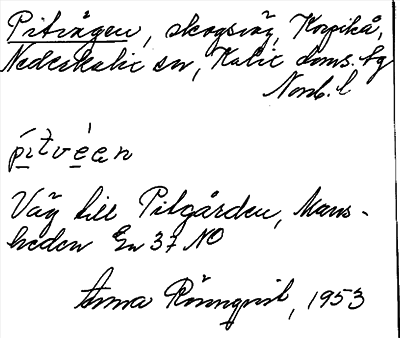 Pitvägen, skogsväg, Korpikå,
Nederkalix sn, Kalix doms. tg
Norrb. l
pitveen
Väg till Pitgården, Mans-
heden En 37 NO
Anna Rönnqvist, 1953